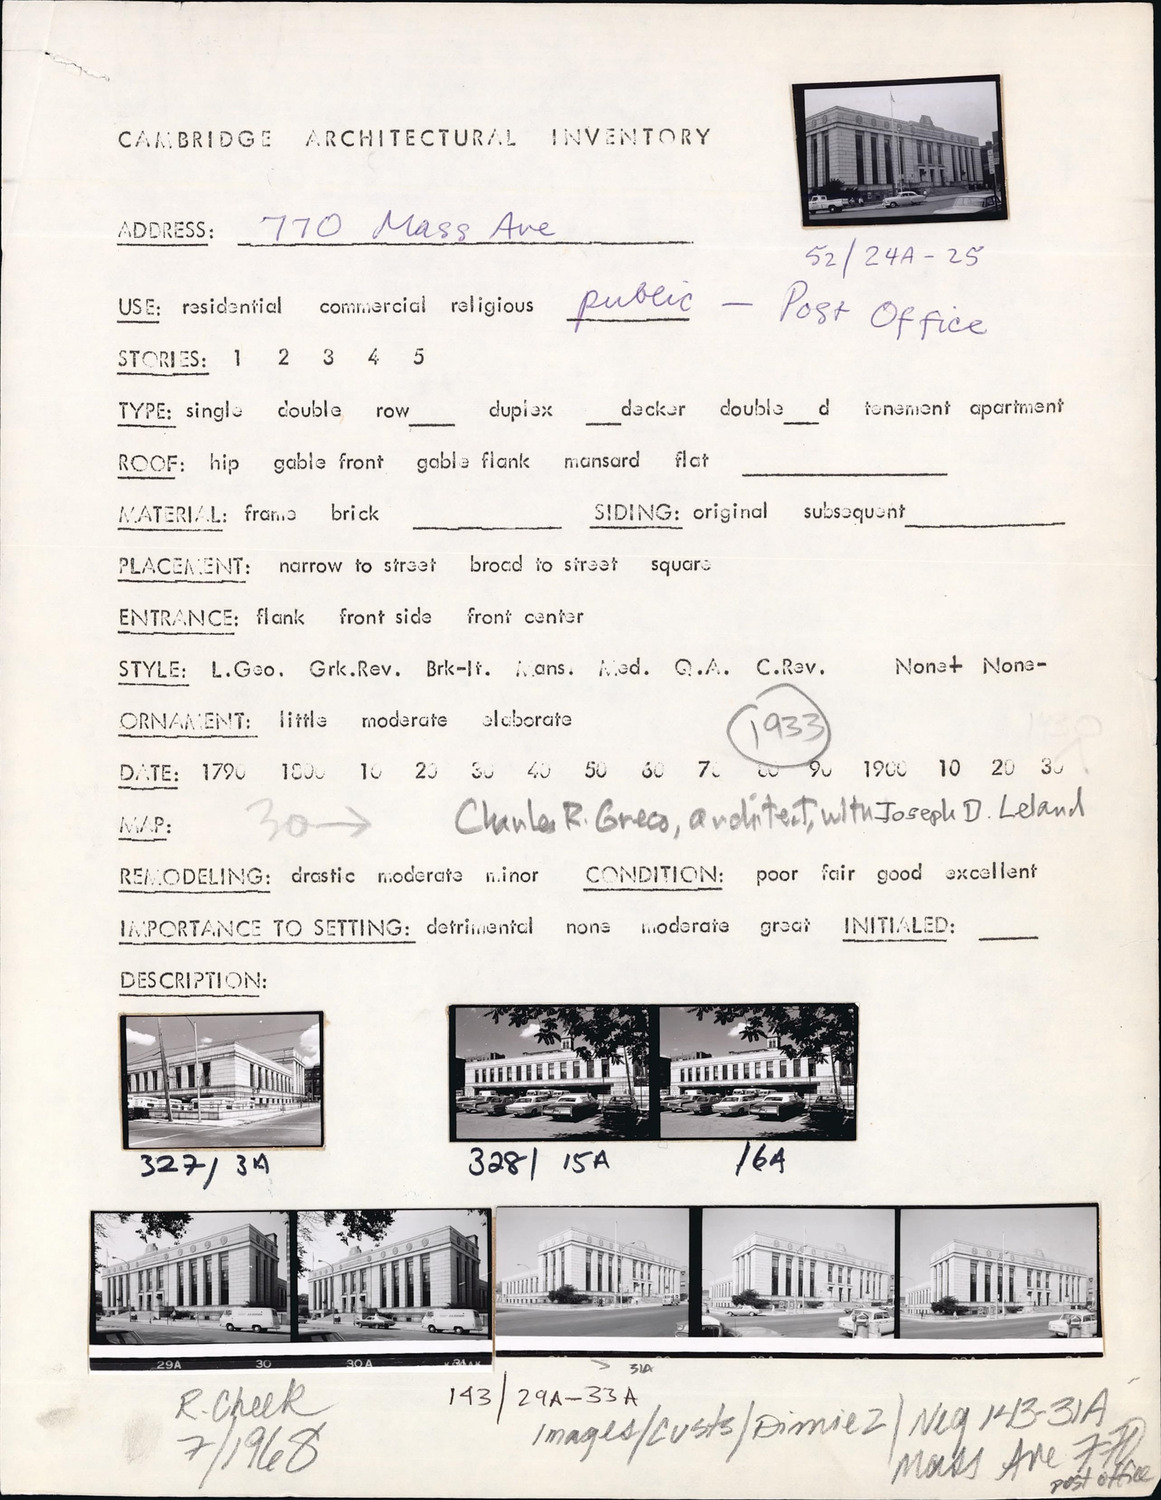 CAMBRIDGE ARCHITECTURAL INVENTORY
ADDRESS: 770 Mass Ave
52/24A-25
USE: residential commercial religious public — Post Office
STORIES: 1 2 3 4 5
TYPE: single double row____ duplex ___decker double___d tenement apartment
ROOF: hip gable front gable flank mansard flat
MATERIAL: frame brick SIDING: original subsequent
PLACEMENT: narrow to street broad to street square
ENTRANCE: flank front side front center
STYLE: L.Geo. Grk.Rev. Brk-It. Mans. Med. Q.A. C.Rev. None+ None-
ORNAMENT: little moderate elaborate
1933
DATE: 1790 1800 10 20 30 40 50 60 70 80 90 1900 10 20 30
MAP: 30→ Charles R. Greco, architect, with Joseph D. Leland
REMODELING: drastic moderate minor CONDITION: poor fair good excellent
IMPORTANCE TO SETTING: detrimental none moderate great INITIALED:
DESCRIPTION:
327/3A 328/15A /16A
29A 30 30A
31A
143/29A-33A
R. Cheek
7/1968
Images/Custs/Dimiez/Neg 143-31A
Mass Ave 770
post office